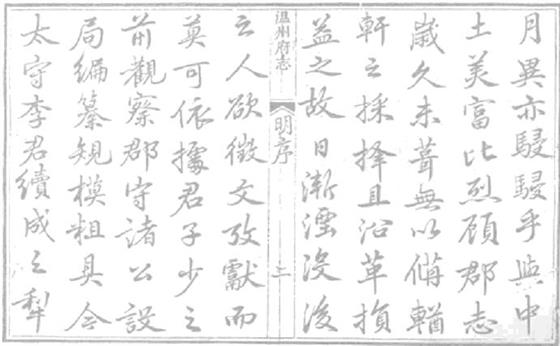 月異亦駸駸乎與中
土美富比烈顧郡志
歲久未葺無以備輶
軒之採擇且沿革損
益之故日漸湮沒後
温州府志
明序
二
之人欲徵文攷獻而
莫可依據君子少之
前觀察郡守諸公設
局編纂規模粗具今
太守李君續成之犁